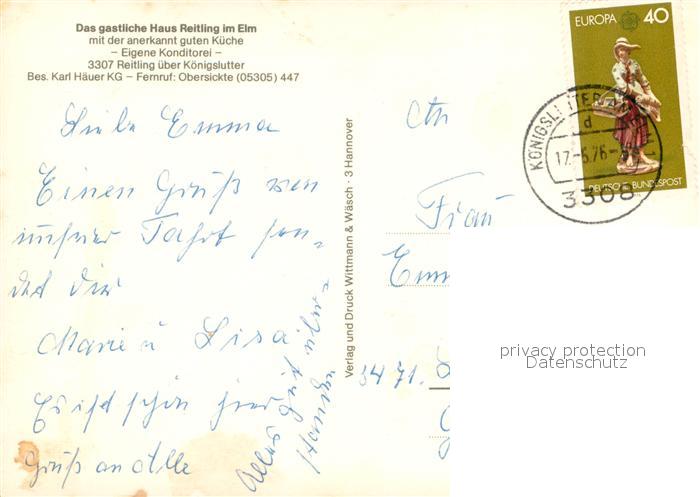 Das gastliche Haus Reitling im Elm
mit der anerkannt guten Küche
– Eigene Konditorei –
3307 Reitling über Königslutter
Bes. Karl Häuer KG – Fernruf: Obersickte (05305) 447
Liebe Emma
Einen Gruß von
unsrer Fahrt sen-
det dir
Marie u Lisa
Es ist schön hier
Gruß an alle
Alles gut über-
standen
Verlag und Druck Wittmann & Wäsch · 3 Hannover
An
Frau
Emm
3471.
EUROPA 40
DEUTSCHE BUNDESPOST
KÖNIGSLUTTER
d
17.-6.76
3308
privacy protection
Datenschutz